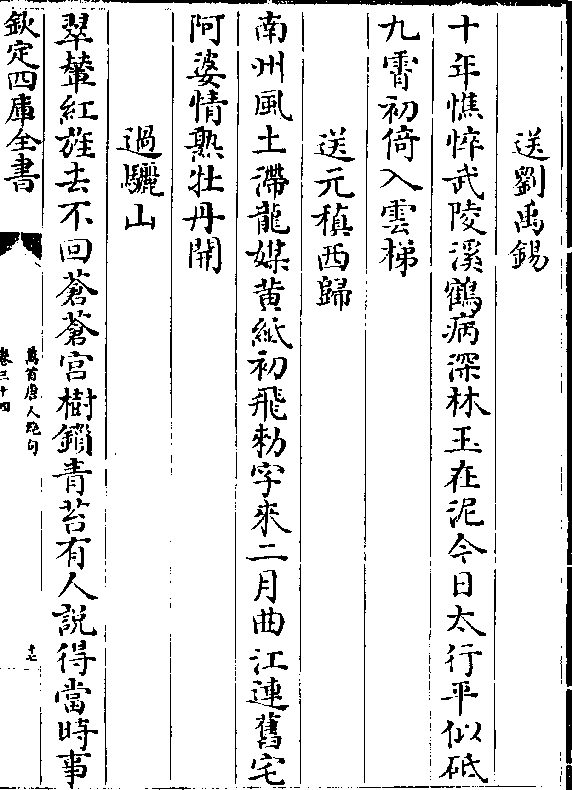 送劉禹錫
十年憔悴武陵溪鶴病深林玉在泥今日太行平似砥
九霄初倚入雲梯
送元稹西歸
南州風土滯龍媒黄紙初飛勅字來二月曲江連舊宅
阿婆情熟牡丹開
過驪山
翠輦紅旌去不回蒼蒼宫樹鎖青苔有人說得當時事
欽定四庫全書
萬首唐人絶句
卷三十四
十七